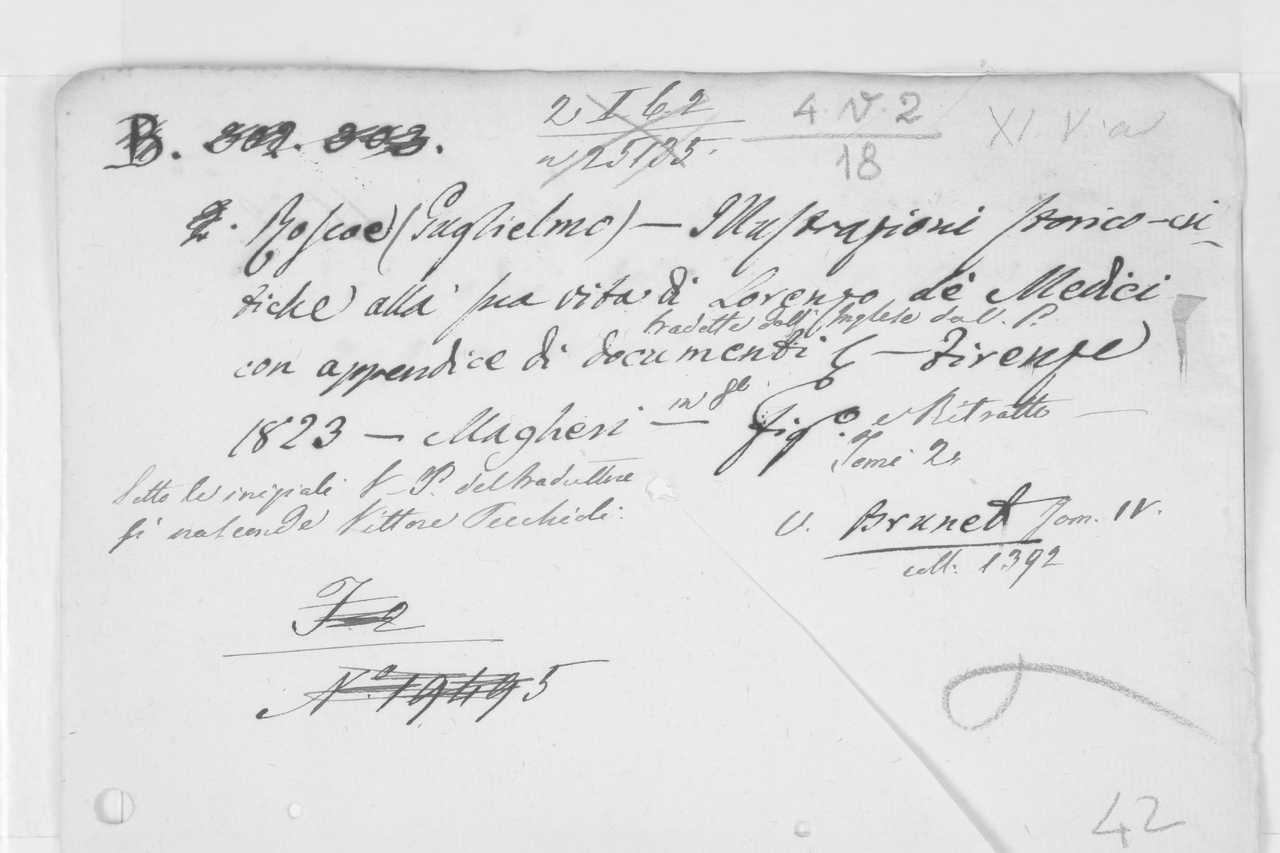 B. 302. 303.
2. I 62
n 25185.
4. V. 2
18
XI. V. a
2. Roscoe (Guglielmo) — Illustrazioni storico-cri-
tiche alla sua vita di Lorenzo de Medici
tradotte dall' Inglese da V. P.
con appendice di documenti — Firenze
1823 — Magheri — in 8º. Figº. e Ritratto —
Tomi 2.
Sotto le iniziali V. P. del traduttore
si nasconde Vittore Pecchioli.
V. Brunet Tom. IV.
coll. 1392
I-2
Nº. 19495
42